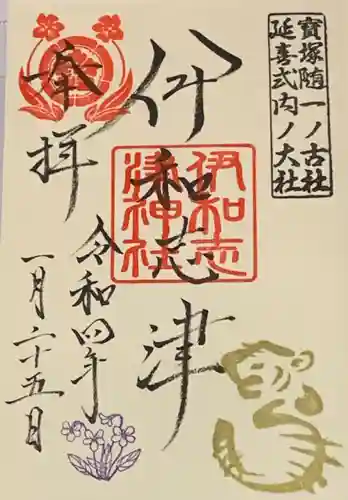 寶塚随一ノ古社
延喜式内ノ大社
伊和志津
伊和志
津神社
奉拝
令和四年
一月二十五日